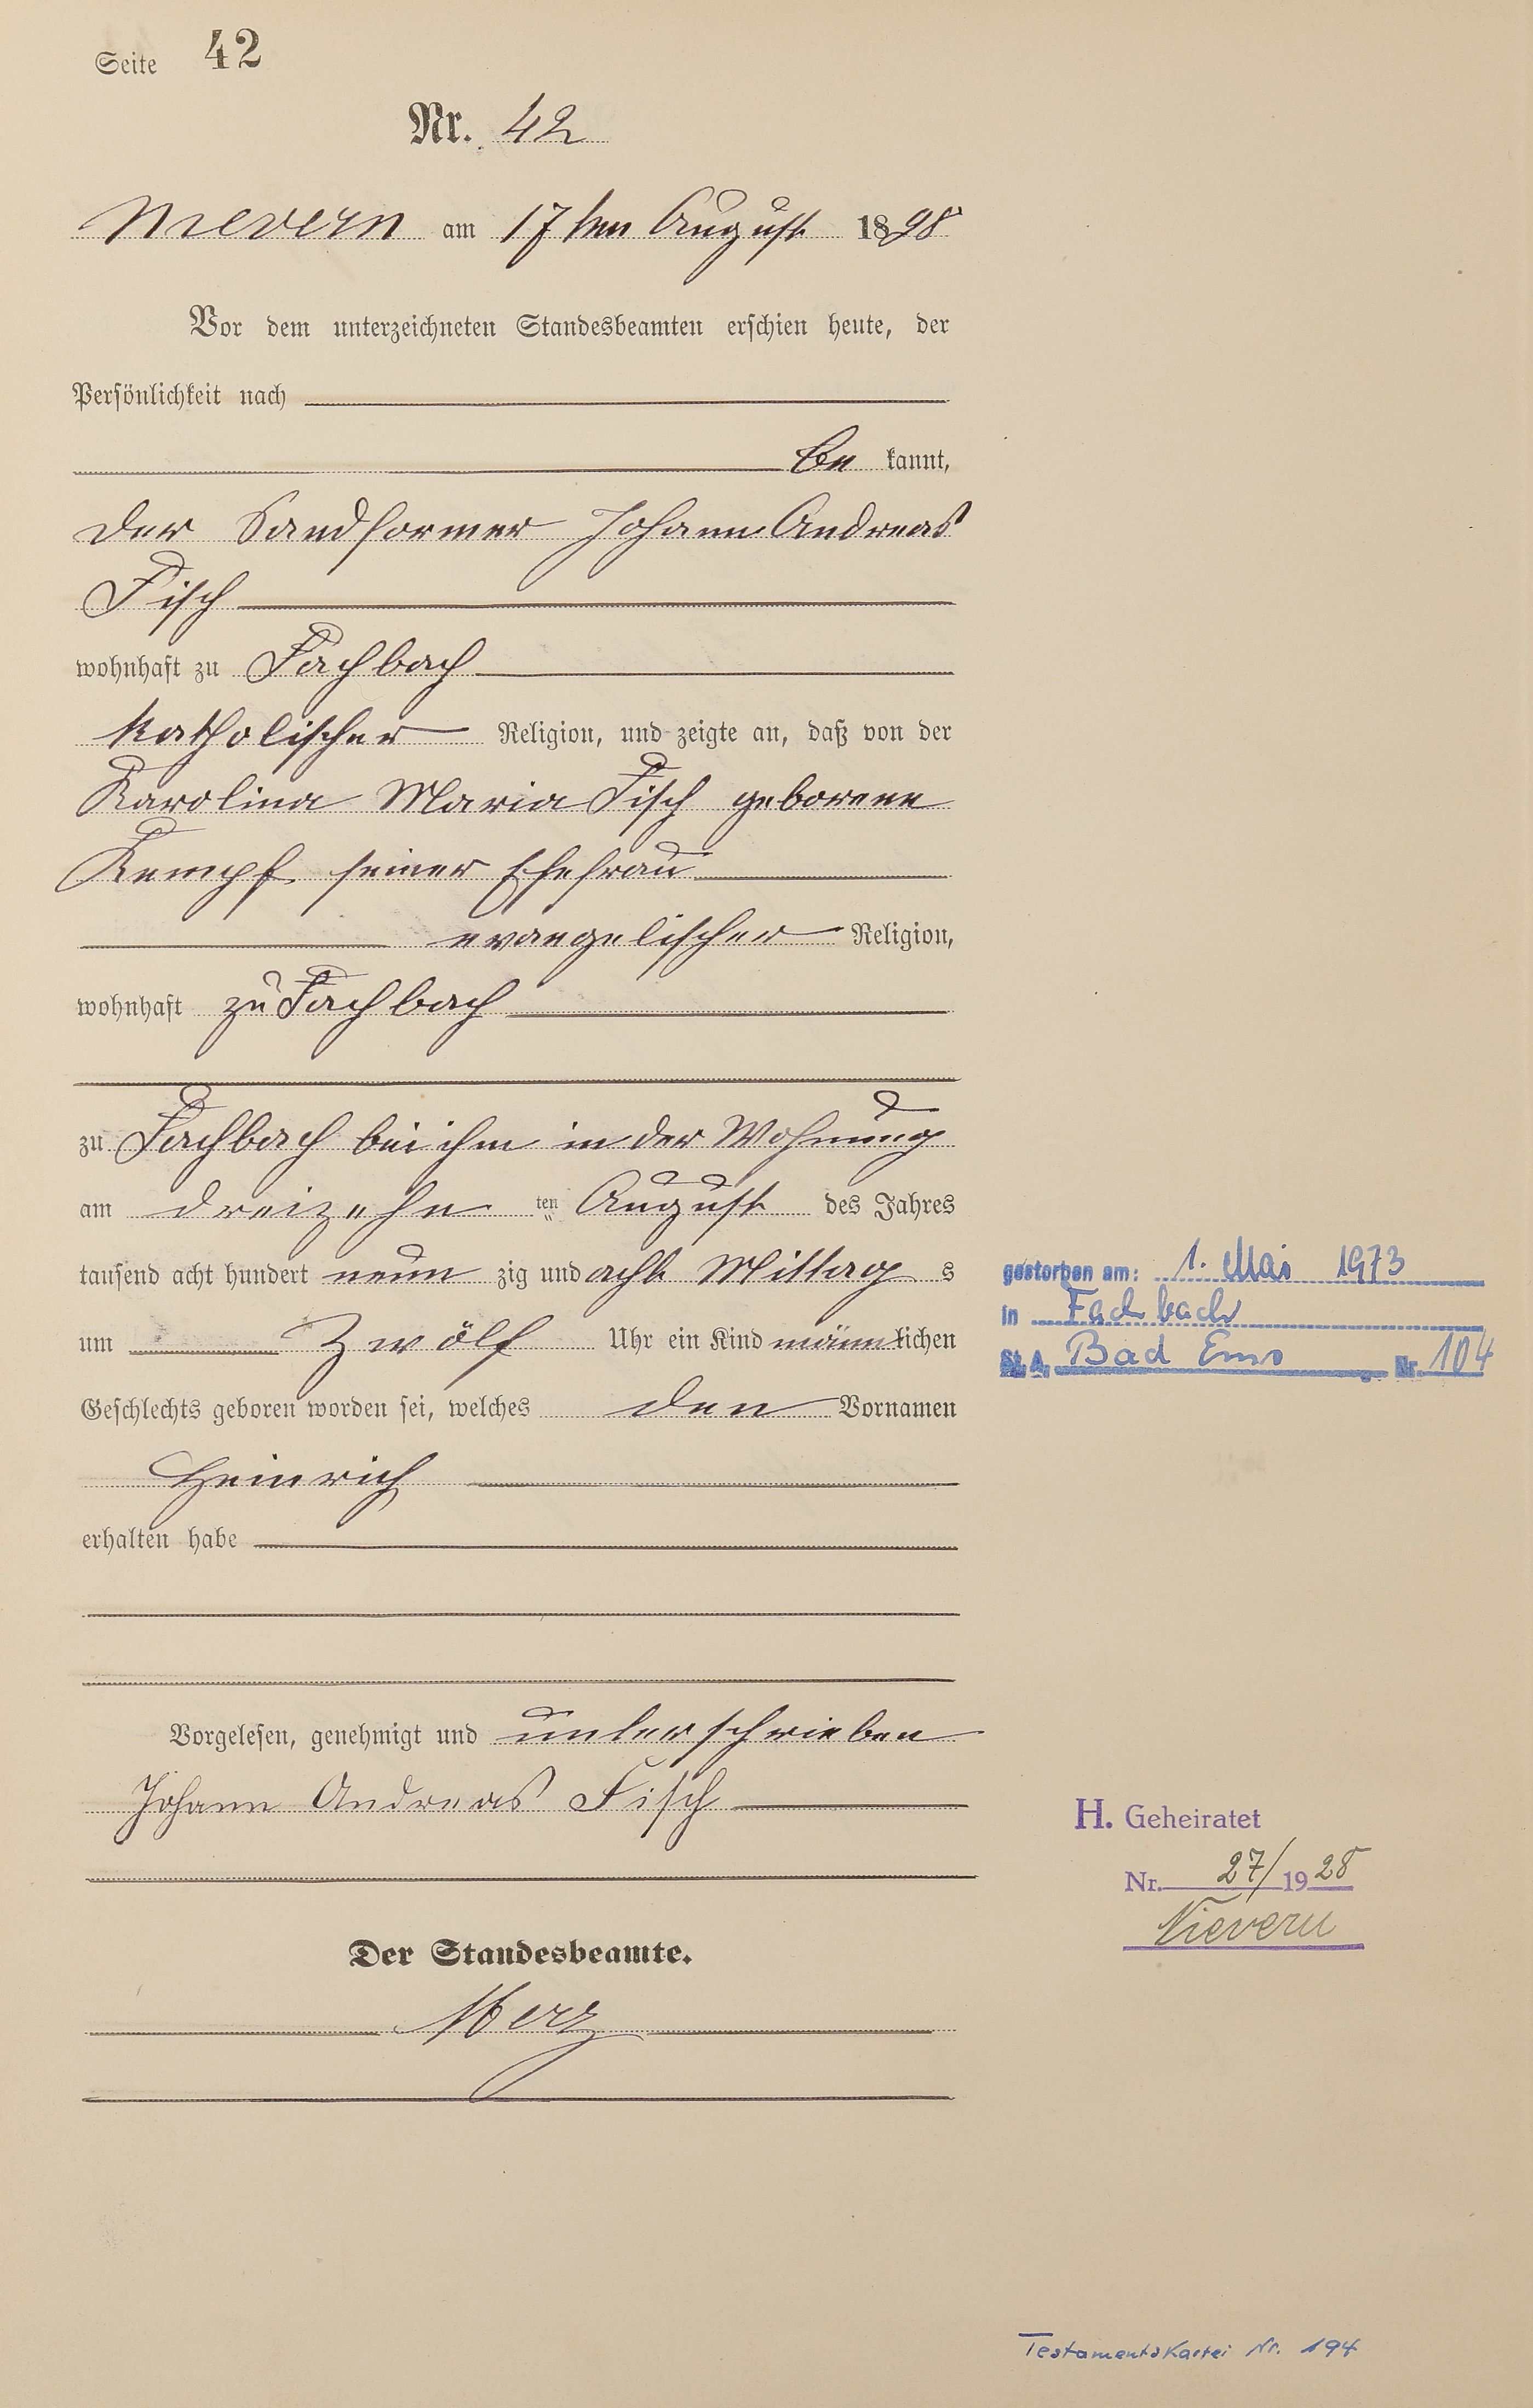 Seite 42
Nr. 42
Nievern am 17ten August 1898
Vor dem unterzeichneten Standesbeamten erschien heute, der
Persönlichkeit nach
be kannt,
der Sandformer Johann Andreas
Fisch
wohnhaft zu Fachbach
katholischer Religion, und zeigte an, daß von der
Karolina Maria Fisch geborene
Kempf seiner Ehefrau
evangelischer Religion,
wohnhaft zu Fachbach
zu Fachbach bei ihm in der Wohnung
am dreizehn ten August des Jahres
tausend acht hundert neun zig und acht Mittag s
um Zwölf Uhr ein Kind männlichen
Geschlechts geboren worden sei, welches den Vornamen
Heinrich
erhalten habe
Vorgelesen, genehmigt und unterschrieben
Johann Andreas Fisch
Der Standesbeamte.
Merz
gestorben am: 1. Mai 1973
in Fachbach
St. A. Bad Ems Nr. 104
H. Geheiratet
Nr. 27/1928
Nievern
Testamentskartei Nr. 194